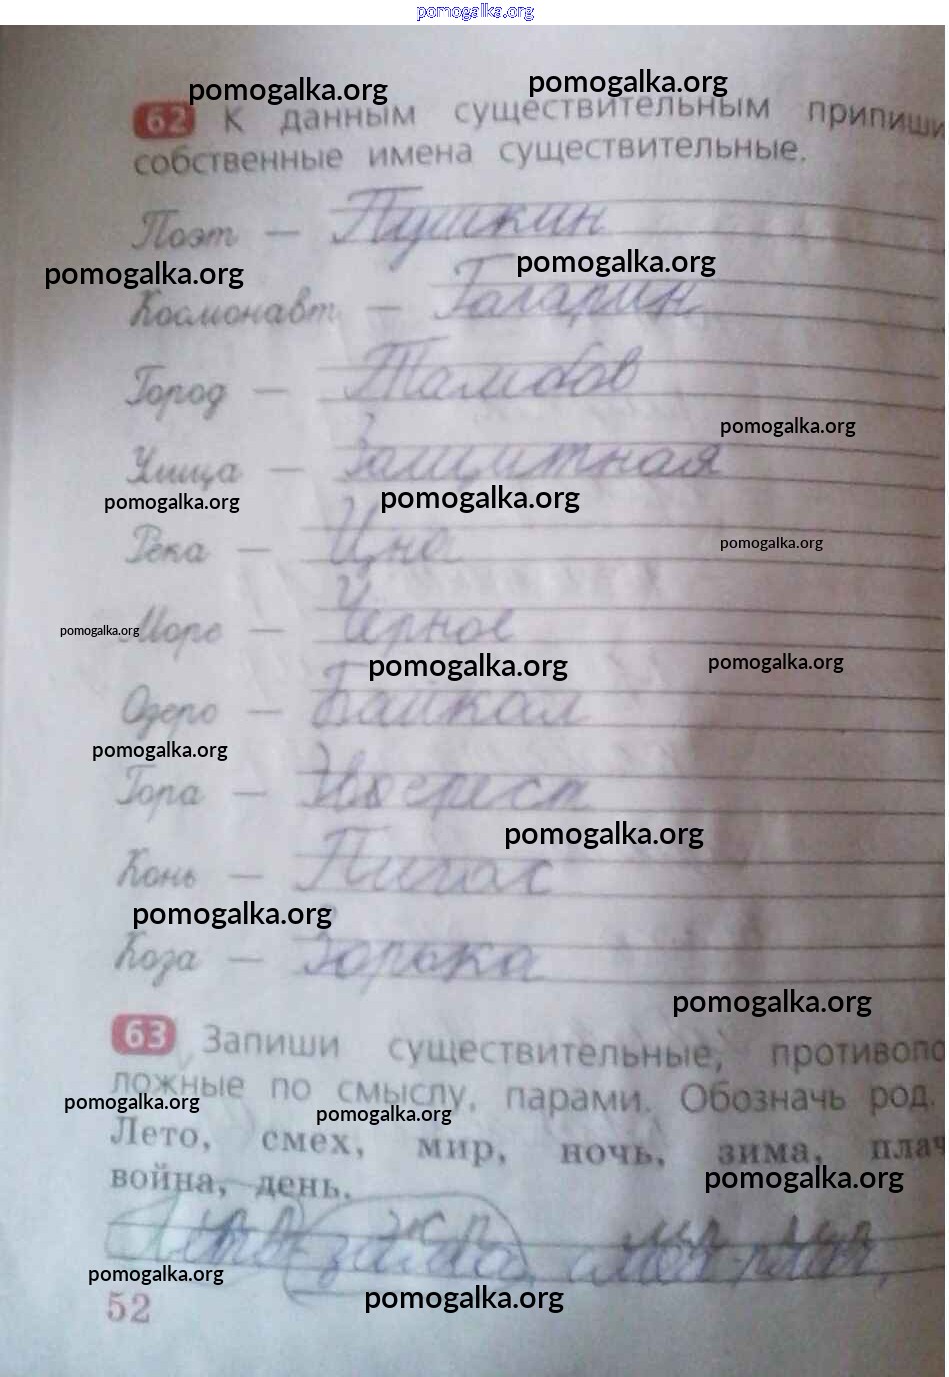 pomogalka.org
pomogalka.org pomogalka.org
62 К данным существительным припиши
собственные имена существительные.
Поэт — Пушкин
pomogalka.org pomogalka.org
Космонавт — Гагарин
Город — Тамбов
pomogalka.org
Улица — Защитная
pomogalka.org pomogalka.org
Река — Цна
pomogalka.org
pomogalka.org
Море — Черное
pomogalka.org pomogalka.org
Озеро — Байкал
pomogalka.org
Гора — Эверест
pomogalka.org
Конь — Пигас
pomogalka.org
Коза — Зорька
pomogalka.org
63 Запиши существительные, противопо
ложные по смыслу, парами. Обозначь род.
pomogalka.org pomogalka.org
Лето, смех, мир, ночь, зима, плач
война, день.
pomogalka.org
ср.р ж.р м.р м.р
Лето зима, смех плач,
pomogalka.org pomogalka.org
52